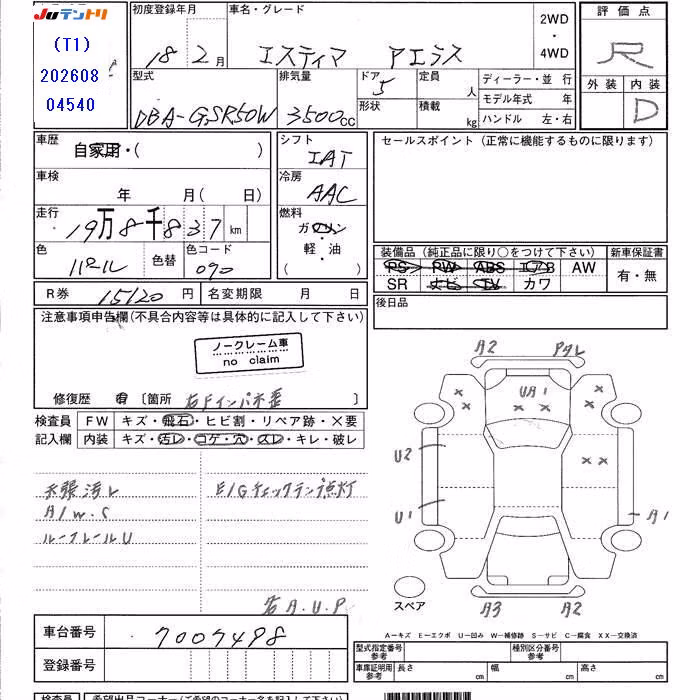 JUテントリ
(T1)
202608
04540
初度登録年月
18年2月
車名・グレード
エスティマ アエラス
2WD
・
4WD
評価点
R
外装 内装
D
型式
DBA-GSR50W
排気量
3500cc
ドア 5
形状
定員 人
積載 kg
ディーラー・並行
モデル年式 年
ハンドル 左・右
車歴
自家用・( )
シフト
IAT
セールスポイント (正常に機能するものに限ります)
車検
年 月( 日)
冷房
AAC
走行
19万8千837km
燃料
ガソリン
軽・油
( )
色
色替
色コード
090
装備品 (純正品に限り○をつけて下さい)
新車保証書
PS PW ABS エアB AW
SR ナビ TV カワ
有・無
R券 15120円
名変期限 月 日
後日品
注意事項申告欄(不具合内容等は具体的に記入して下さい)
ノークレーム車
no claim
修復歴 有 〔箇所 右Fインパネ歪 〕
検査員
記入欄
FW キズ・飛石・ヒビ割・リペア跡・×要
内装 キズ・汚レ・コゲ・穴・スレ・キレ・破レ
天張汚レ
A/W.S
ルーフレールU
E/Gチェックランプ点灯
右A.U.P
A2
UA1
U2
U1
A1
A3 A2
スペア
車台番号 7007498
登録番号
A−キズ E−エクボ U−凹み W−補修跡 S−サビ C−腐食 XX−交換済
型式指定番号
参考
種別区分番号
参考
車庫証明用
参考
長さ cm 幅 cm 高さ cm
検査員
希望出品コーナー(ご希望のコーナー名を記入して下さい)